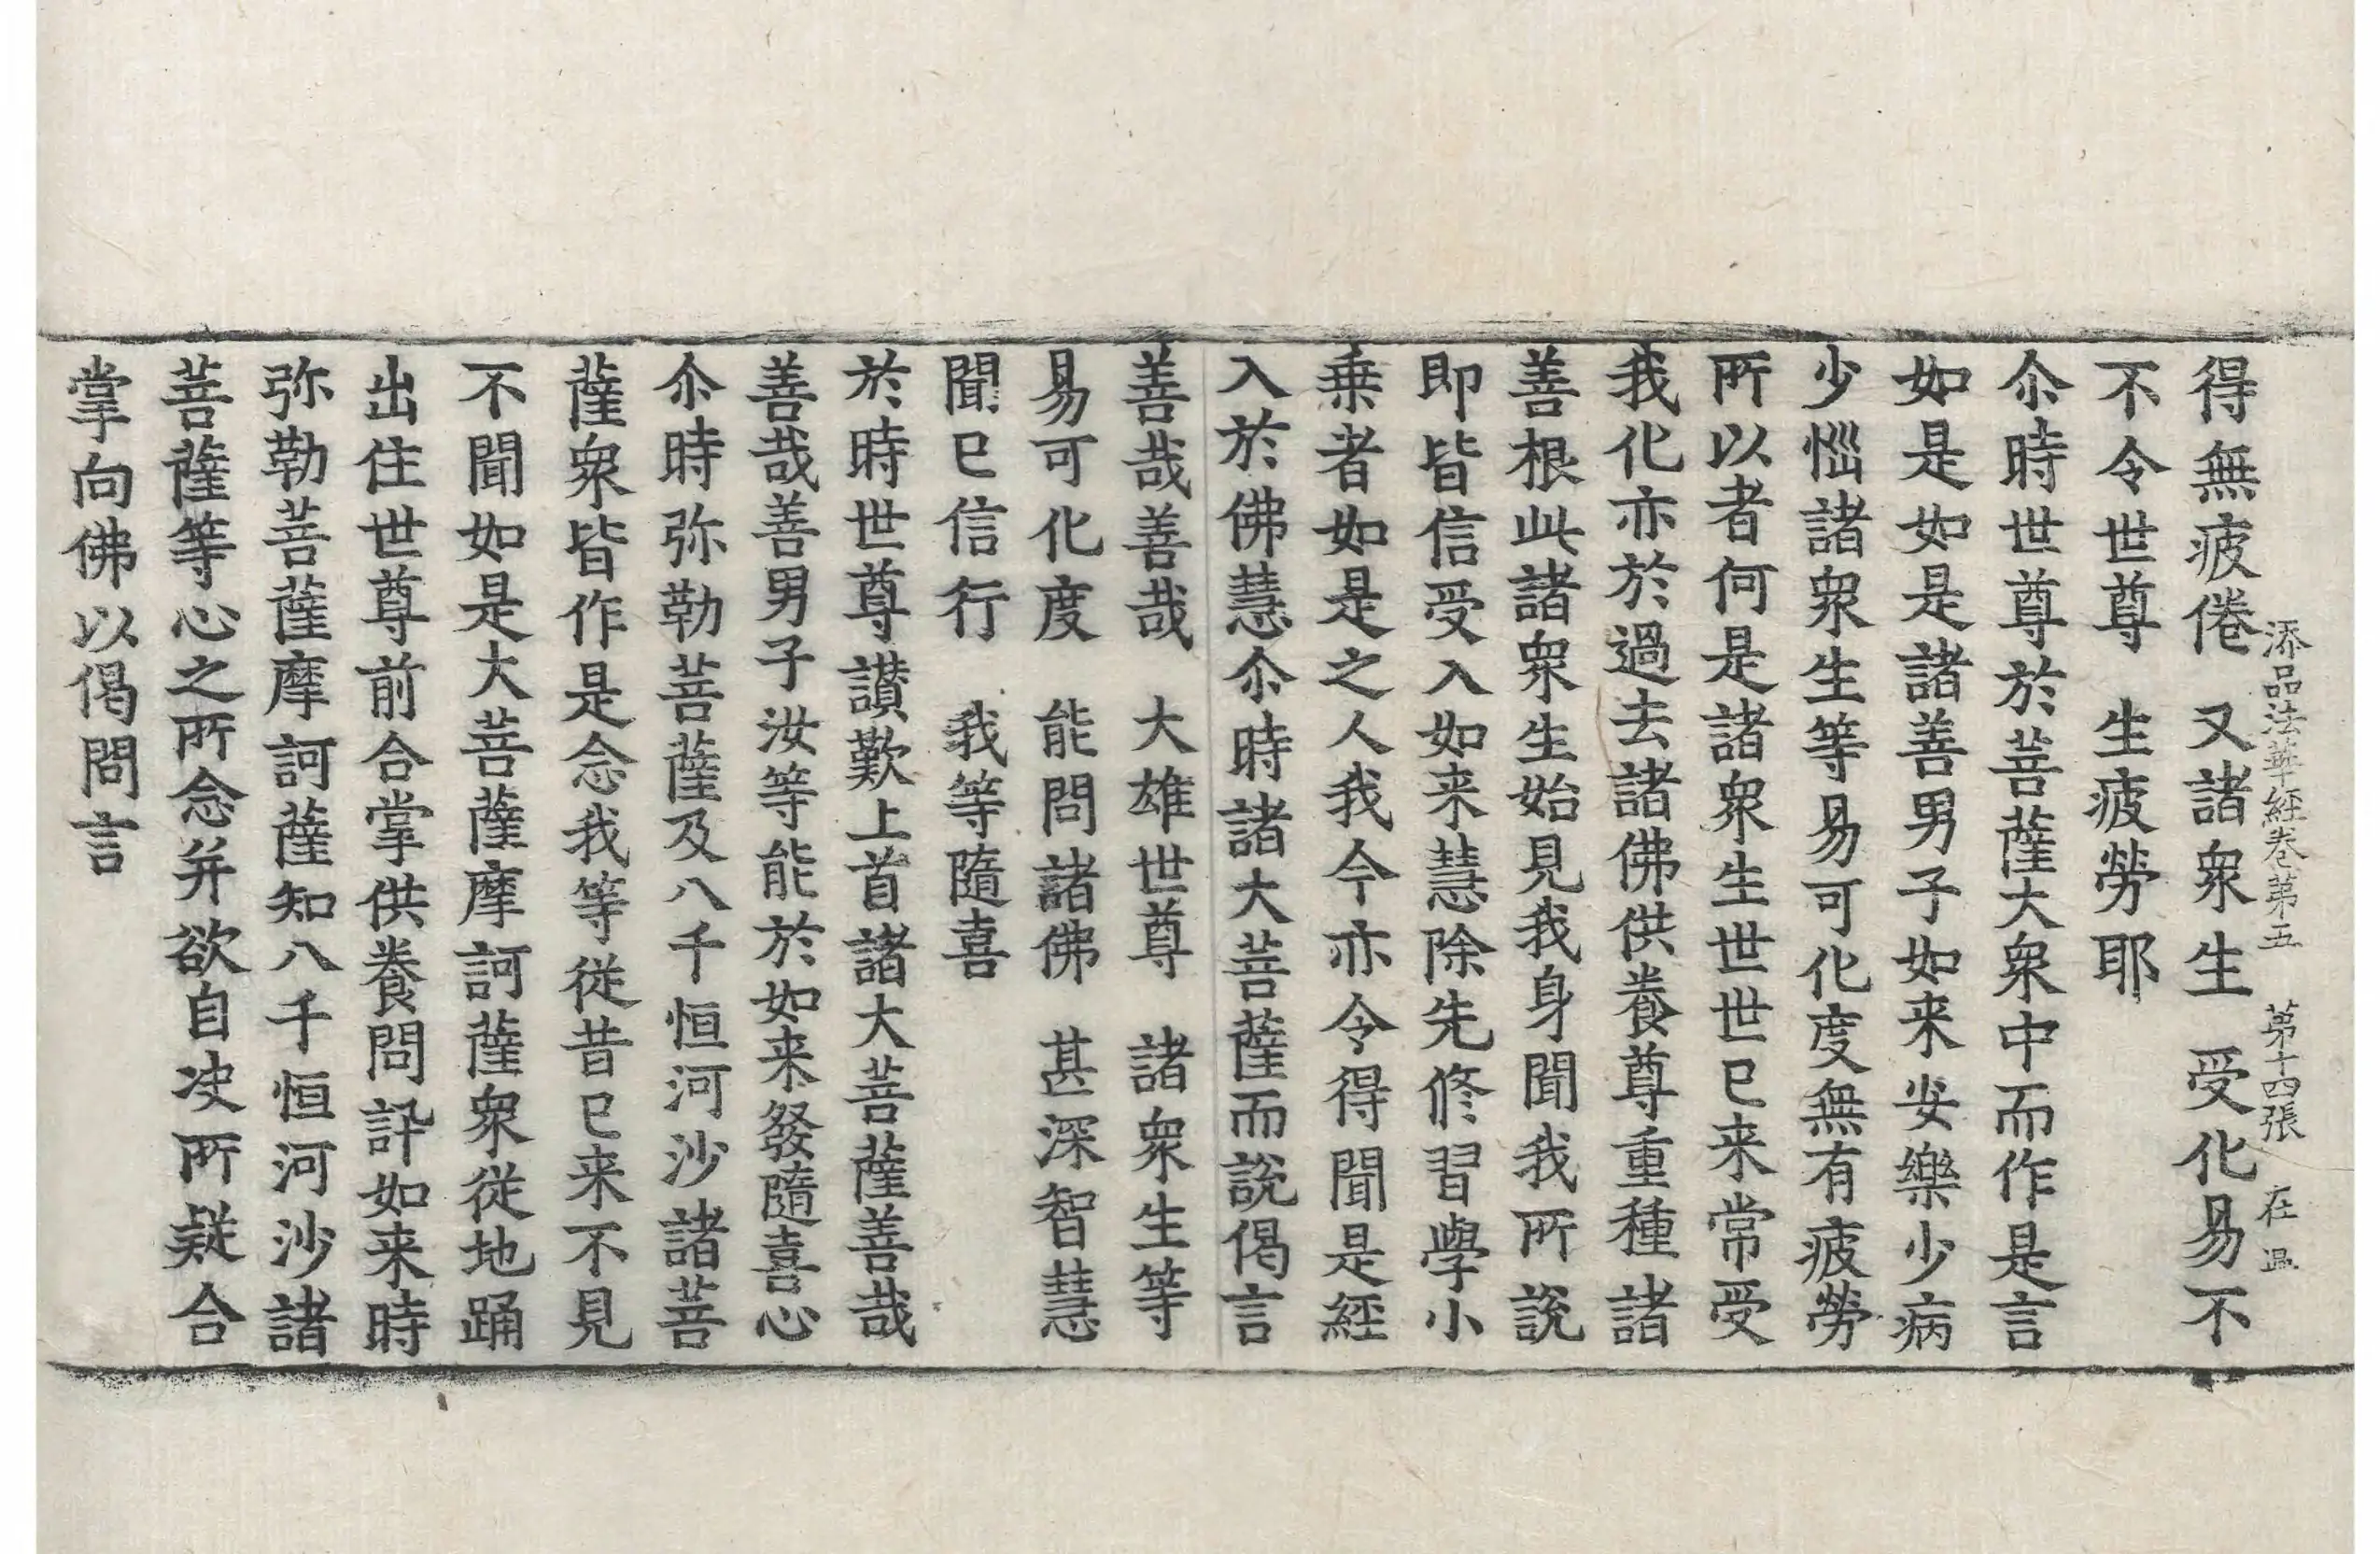 添品法華經卷第五　第十四張　在
得無疲倦　又諸衆生　受化易不
不令世尊　生疲勞耶
尒時世尊於菩薩大衆中而作是言
如是如是諸善男子如来安樂少病
少惱諸衆生等易可化度無有疲勞
所以者何是諸衆生世世已来常受
我化亦於過去諸佛供養尊重種諸
善根此諸衆生始見我身聞我所說
即皆信受入如来慧除先修習學小
乗者如是之人我今亦令得聞是經
入於佛慧尒時諸大菩薩而說偈言
善哉善哉　大雄世尊　諸衆生等
易可化度　能問諸佛　甚深智慧
聞已信行　我等隨喜
於時世尊讃歎上首諸大菩薩善哉
善哉善男子汝等能於如来發隨喜心
尒時弥勒菩薩及八千恒河沙諸菩
薩衆皆作是念我等従昔已来不見
不聞如是大菩薩摩訶薩衆従地踊
出住世尊前合掌供養問訊如来時
弥勒菩薩摩訶薩知八千恒河沙諸
菩薩等心之所念并欲自決所疑合
掌向佛以偈問言